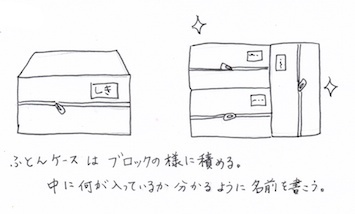 しき
ふとんケースは ブロックの様に積める。
中に何が入っているか分かるように名前を書こう。